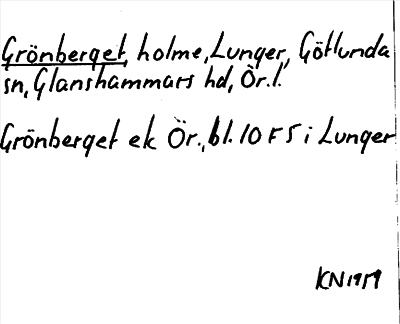 Grönberget, holme, Lunger, Götlunda
sn, Glanshammars hd, Ör.l.
Grönberget ek Ör., bl. 10 F 5 i Lunger
KN 1959